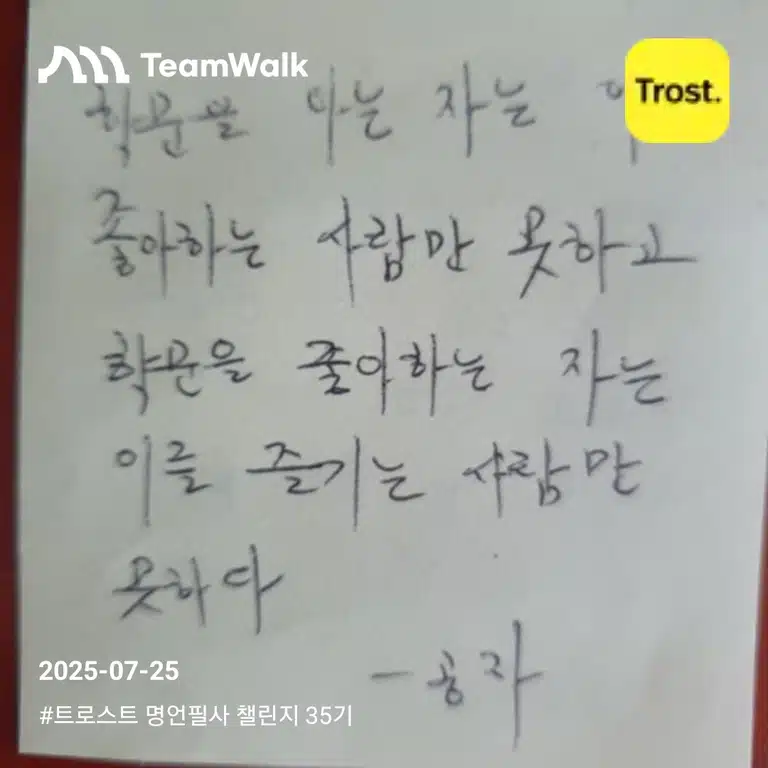 TeamWalk
Trost.
학문을 아는 자는
좋아하는 사람만 못하고
학문을 좋아하는 자는
이를 즐기는 사람만
못하다
- 공자
2025-07-25
#트로스트 명언필사 챌린지 35기